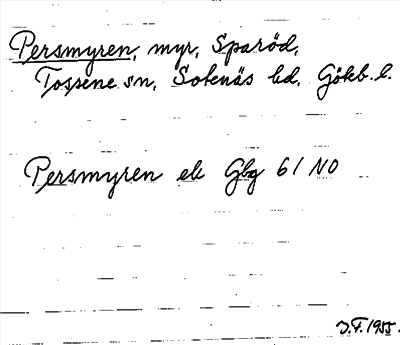 Persmyren, myr, Sparöd,
Tossene sn, Sotenäs hd. Gökb. l.
Persmyren ek Gbg 61 NO
J.F. 1955.